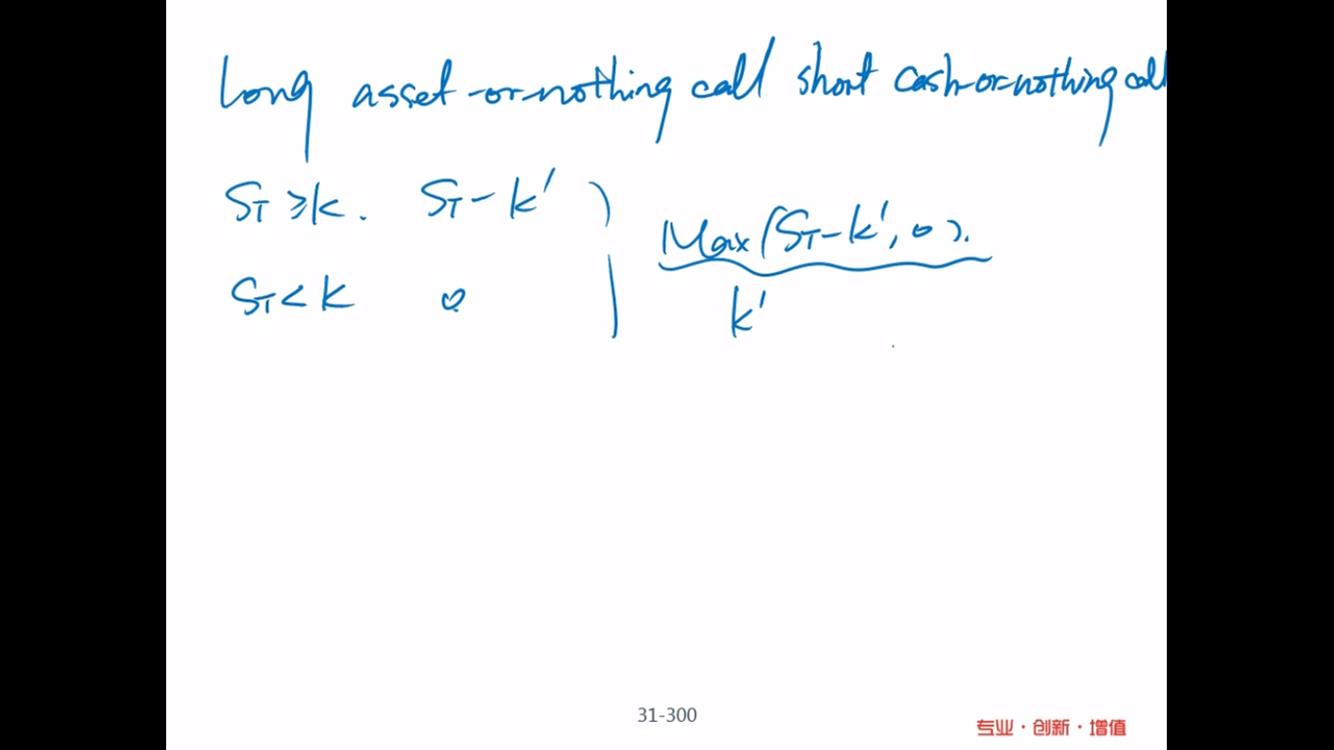 Long asset-or-nothing call short cash-or-nothing call
ST ≥ k. ST - k'
Max(ST - k', 0).
ST < k 0
k'
31-300
专业·创新·增值